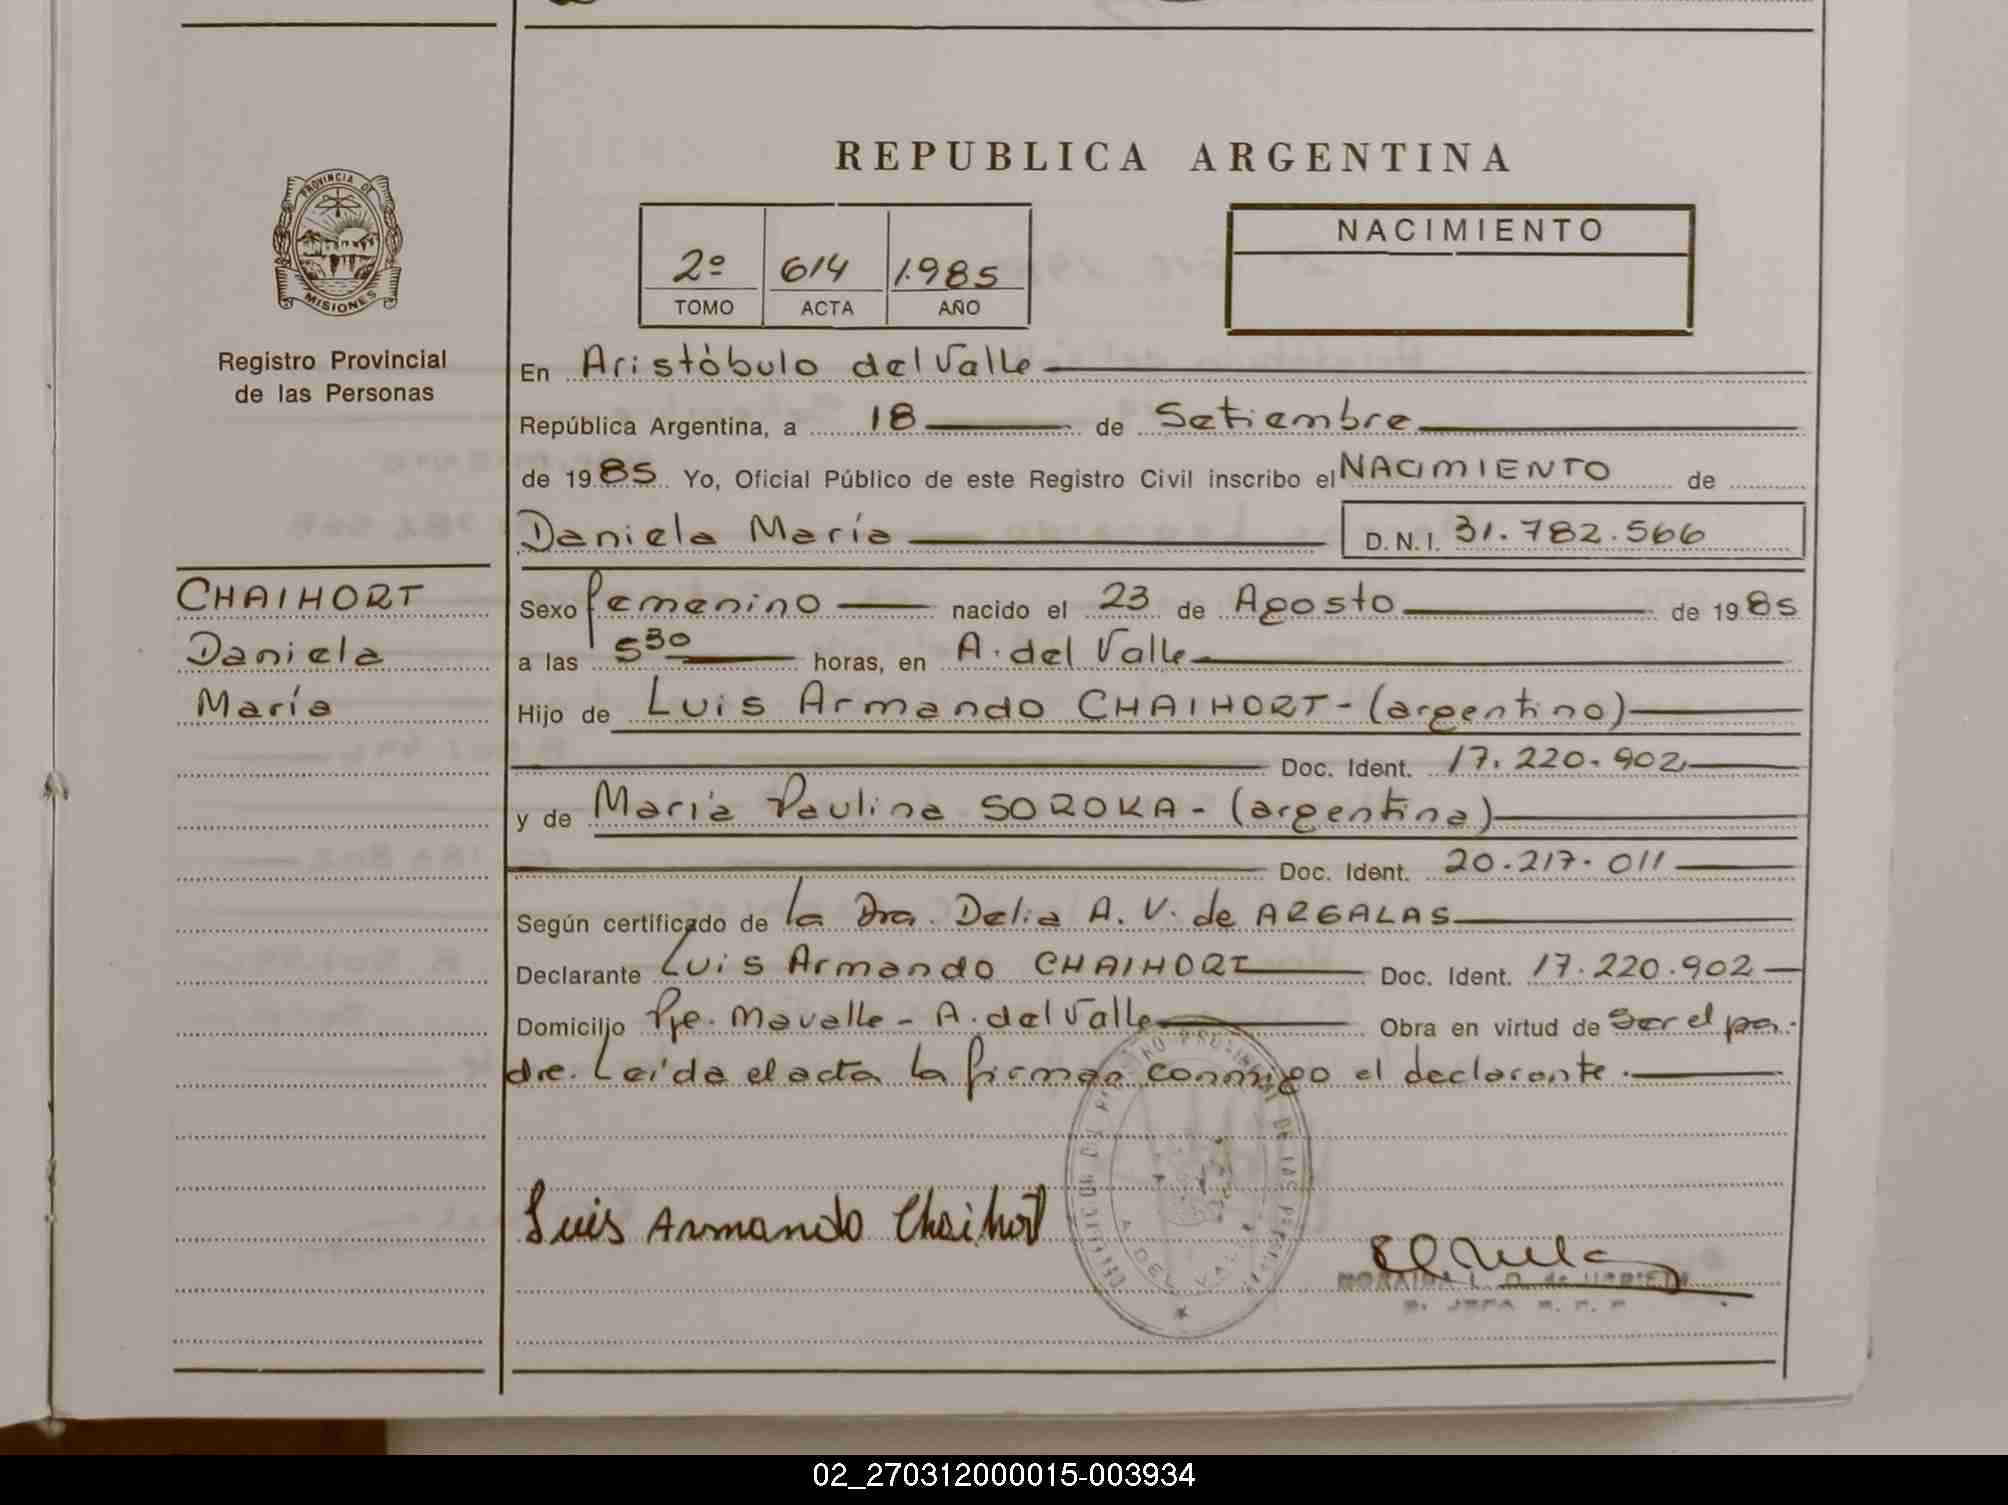 REPUBLICA ARGENTINA
PROVINCIA DE
MISIONES
Registro Provincial
de las Personas
2º 614 1.985
TOMO ACTA AÑO
NACIMIENTO
En Aristóbulo del Valle
República Argentina, a 18 de Setiembre
de 1985 Yo, Oficial Público de este Registro Civil inscribo el NACIMIENTO de
Daniela María D.N.I. 31.782.566
CHAIHORT
Daniela
María
Sexo femenino nacido el 23 de Agosto de 1985
a las 5 30 horas, en A. del Valle
Hijo de Luis Armando CHAIHORT - (argentino)
Doc. Ident. 17.220.902
y de María Paulina SOROKA - (argentina)
Doc. Ident. 20.217.011
Según certificado de la Dra. Delia A. V. de ARGALAS
Declarante Luis Armando CHAIHORT Doc. Ident. 17.220.902
Domicilio Pje. Mavalle - A. del Valle Obra en virtud de ser el pa-
dre. Leída el acta la firman conmigo el declarante.
Luis Armando Chaihort
A. DEL VALLE
02_270312000015-003934